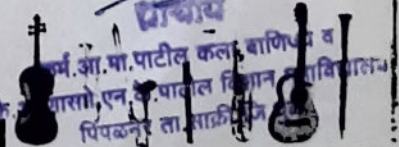 प्राचार्य
कर्म.आ.मा.पाटील कला, वाणिज्य व
एन.के.पाटील विज्ञान महाविद्यालय
पिंपळनेर ता.साक्री जि